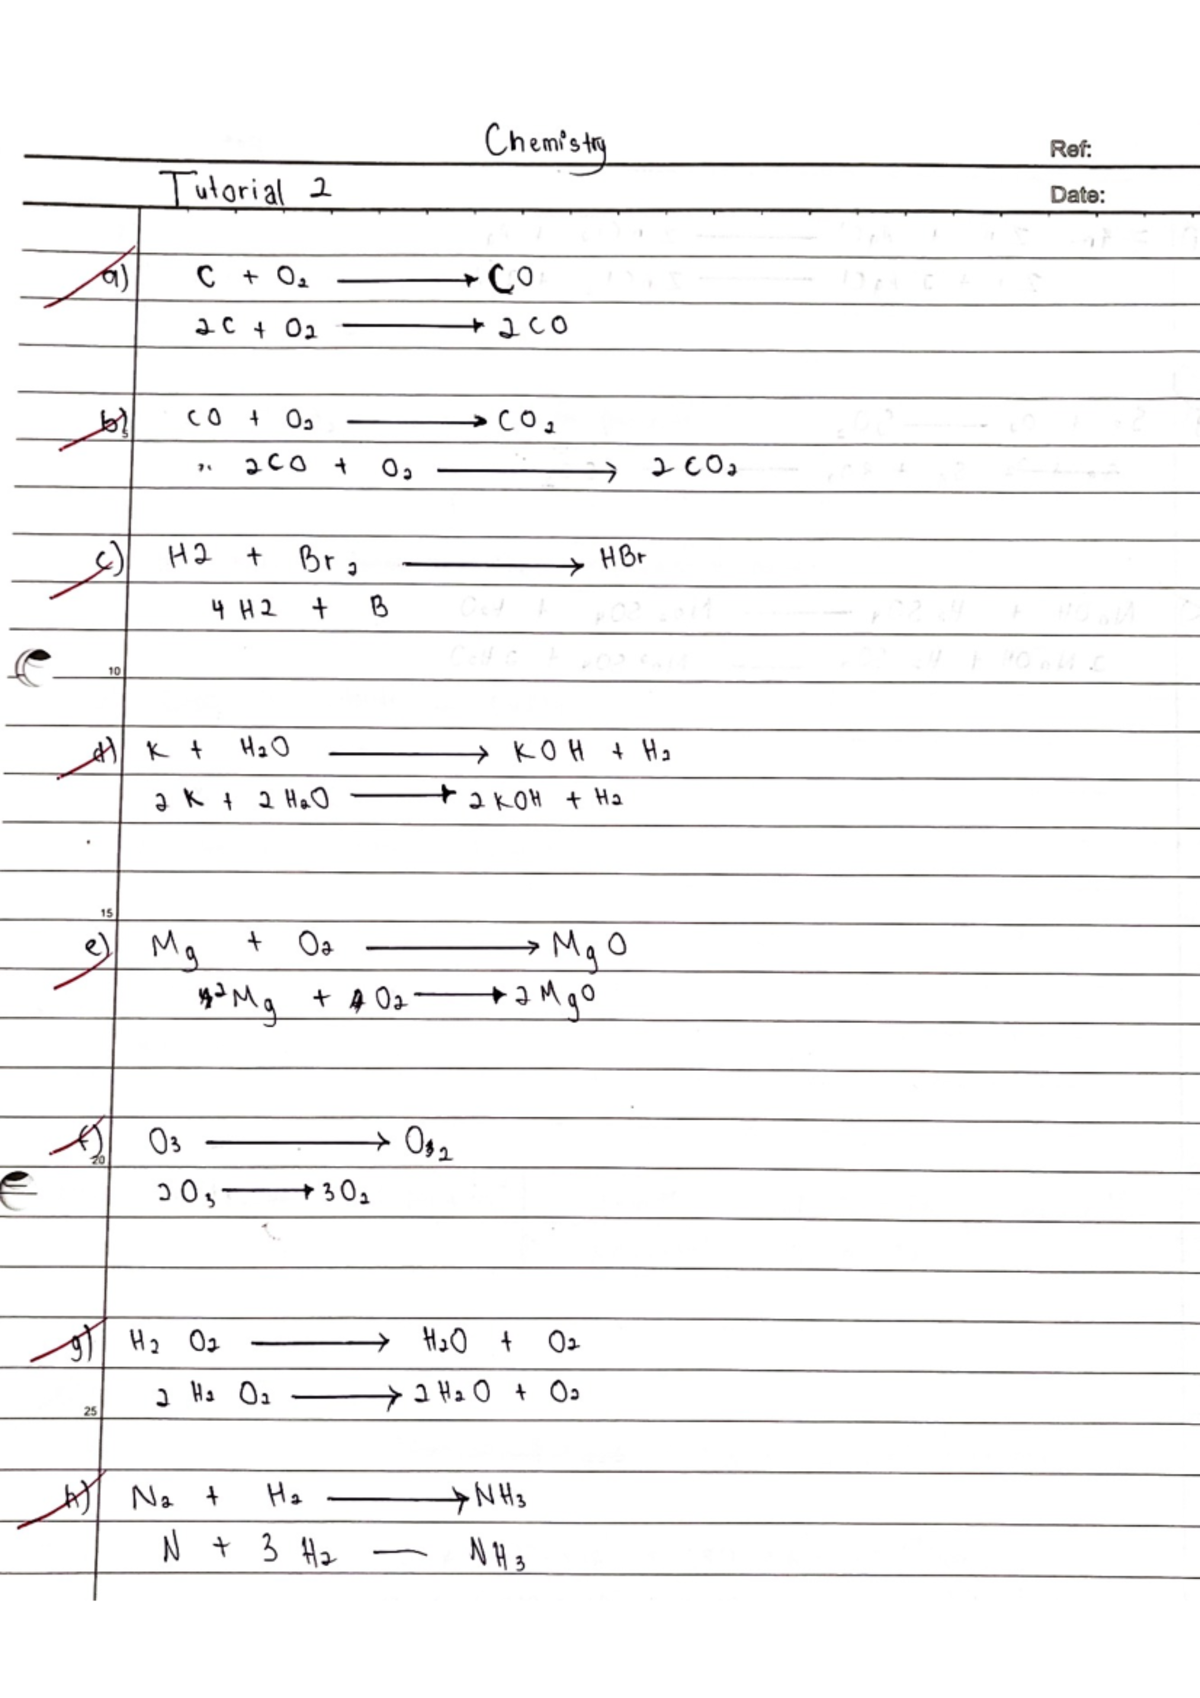 Chemistry
Ref:
Tutorial 2
Date:
a) C + O₂ → CO
2C + O₂ → 2CO
b) CO + O₂ → CO₂
5
∴ 2CO + O₂ → 2CO₂
c) H2 + Br₂ → HBr
4H2 + B
10
d) K + H₂O → KOH + H₂
2K + 2H₂O → 2KOH + H₂
15
e) Mg + O₂ → MgO
2Mg + O₂ → 2MgO
f) O₃ → O₂
20
2O₃ → 3O₂
g) H₂O₂ → H₂O + O₂
2H₂O₂ → 2H₂O + O₂
25
h) N₂ + H₂ → NH₃
N + 3H₂ — NH₃